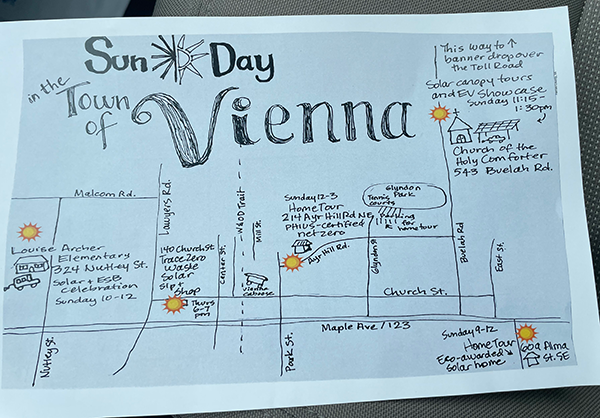 Sun Day
in the
Town
of
Vienna
This way to ↑
banner drop over
the Toll Road
Solar canopy tours
and EV Showcase
Sunday 11:15-
1:30pm
Church of the
Holy Comforter
543 Buelah Rd.
Malcom Rd.
Lawyers Rd.
W&OD Trail
Mill St.
Center St.
Louise Archer
Elementary
324 Nutley St.
Solar + ESB
Celebration
Sunday 10-12
140 Church St.
Trace Zero
Waste
Solar
Sip +
Shop
Thurs
6-7
pm
Vienna
caboose
Sunday 12-3
Home Tour
214 Ayr Hill Rd NE
PHIUS-certified
net zero
Glyndon
Park
Tennis
courts
Parking
for
home tour
Ayr Hill Rd.
Glyndon St
Buelah Rd
East St.
Church St.
Maple Ave / 123
Nutley St.
Park St.
Sunday 9-12
Home Tour
Eco-awarded
solar home
609 Alma
St. SE